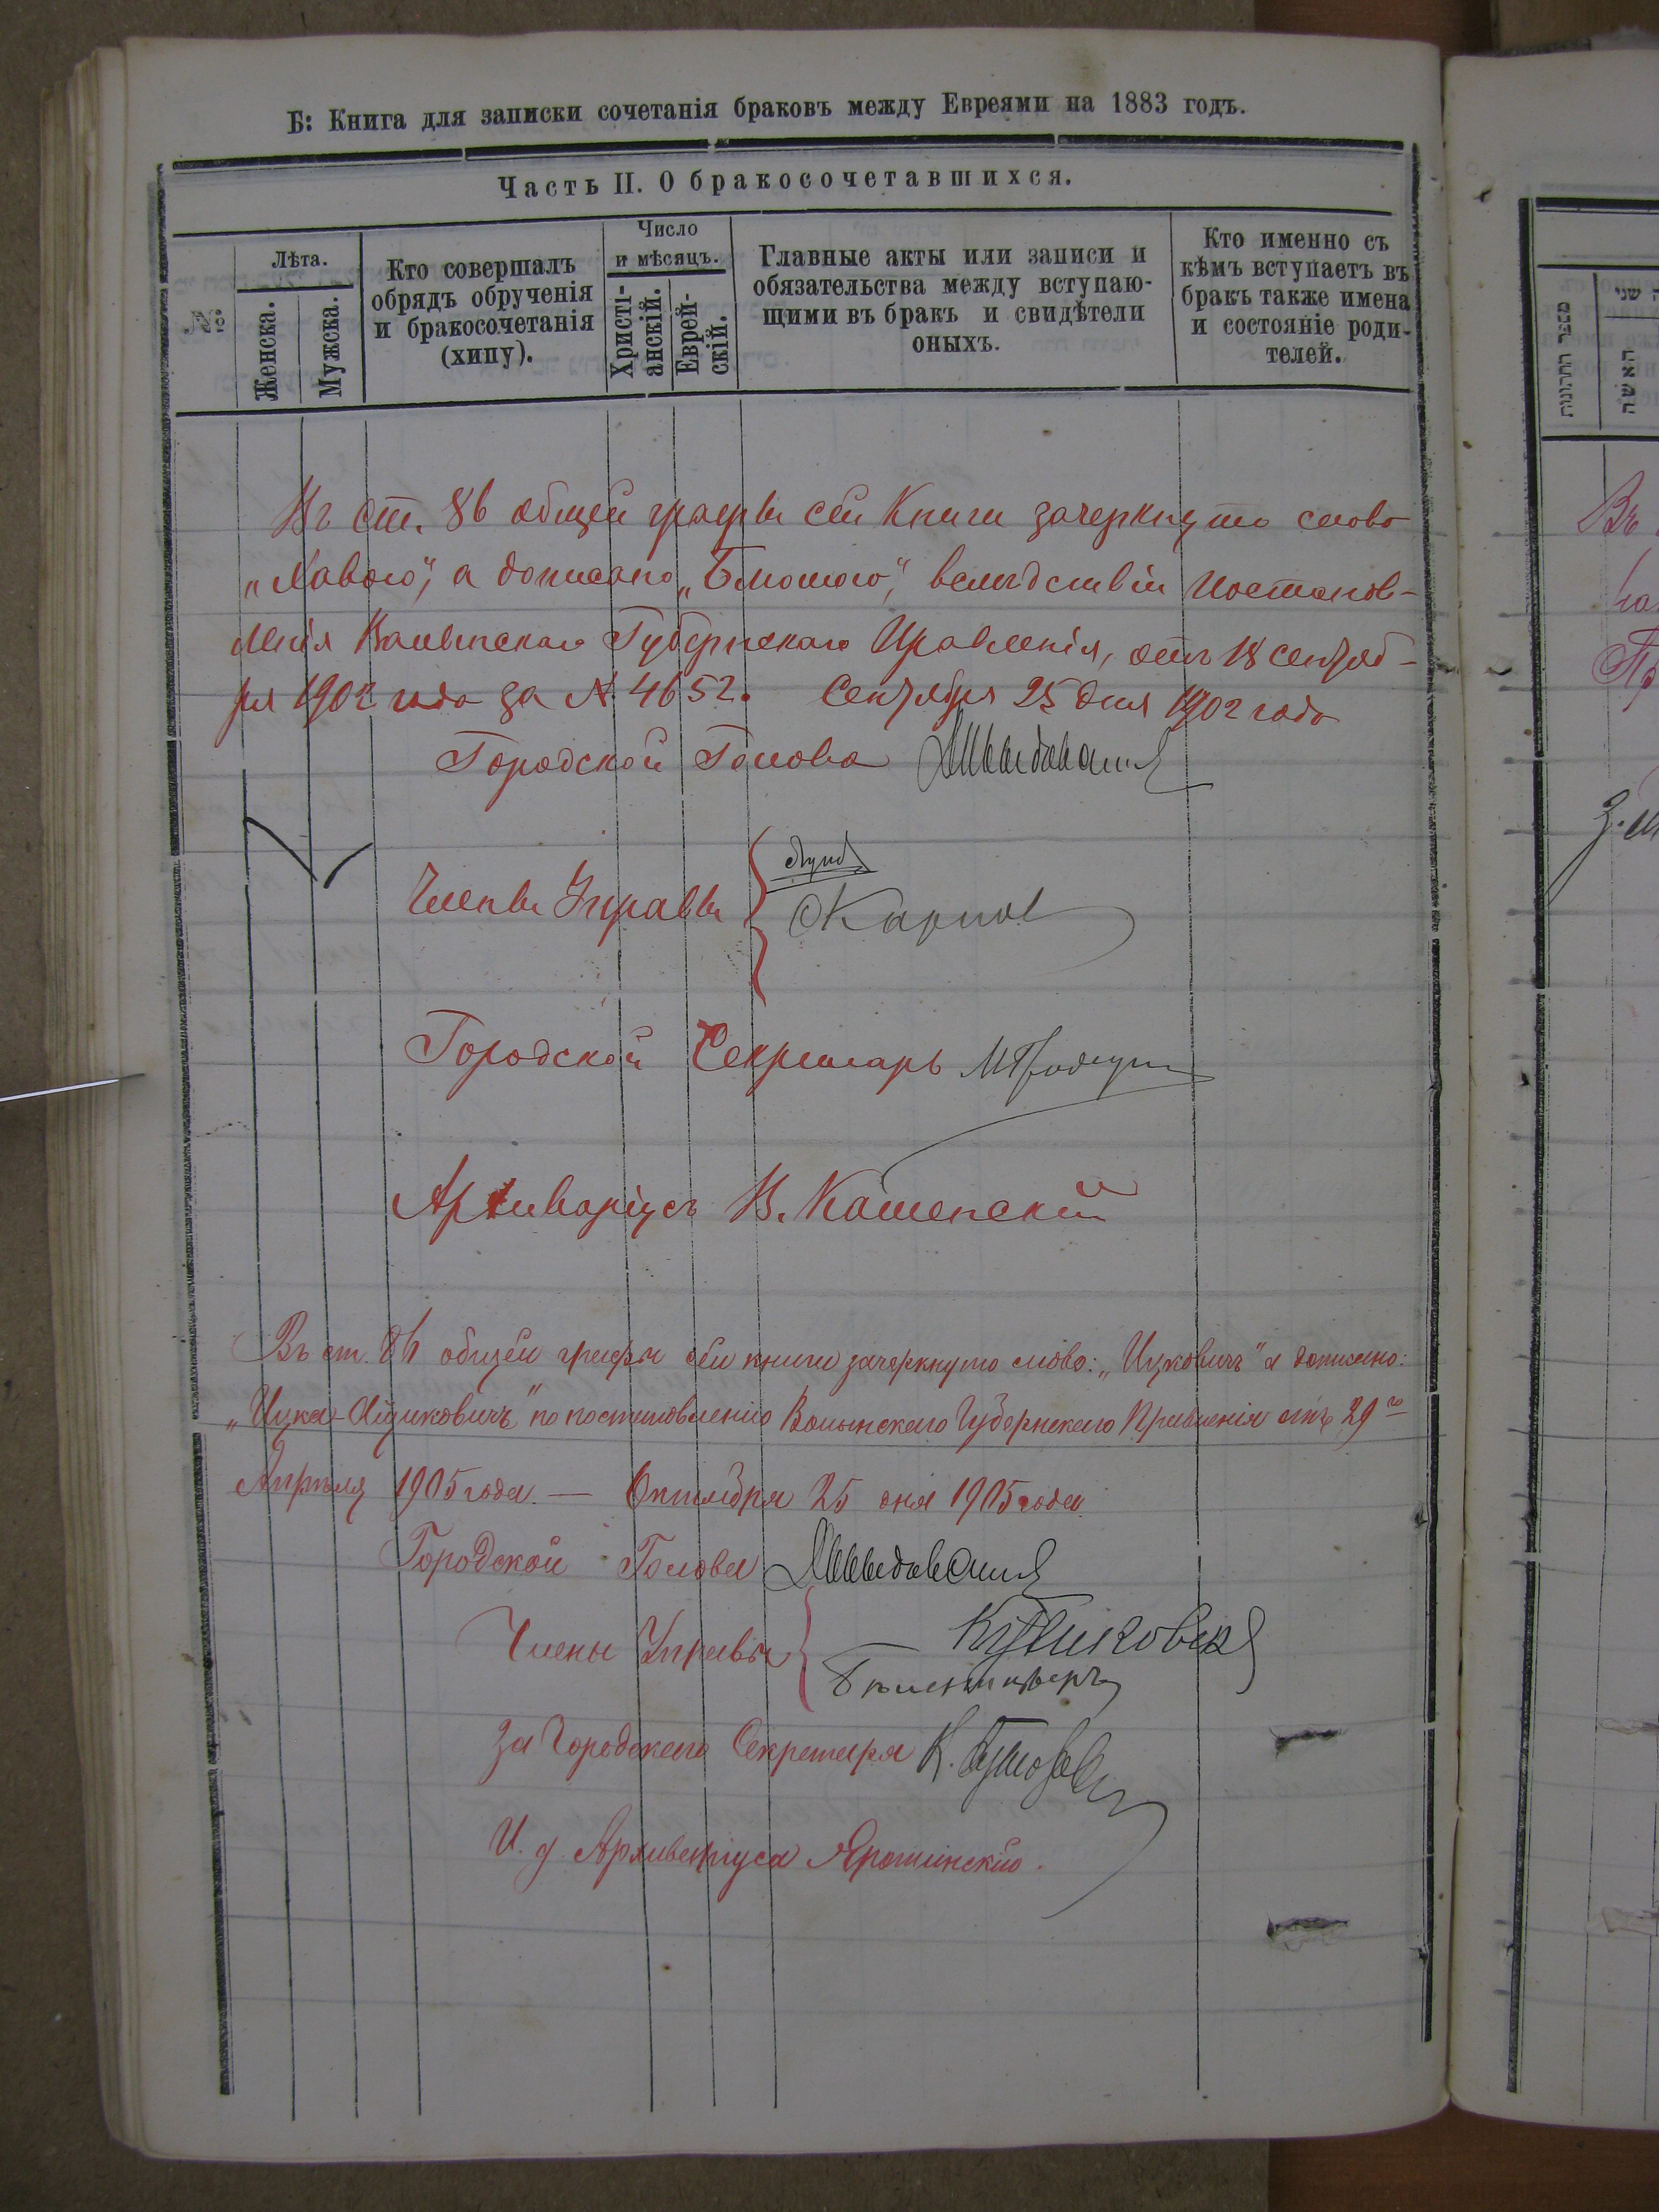 Б: Книга для записки сочетанія браковъ между Евреями на 1883 годъ.
Часть II. О бракосочетавшихся.
№
Лѣта.
Женска.
Мужска.
Кто совершалъ
обрядъ обрученія
и бракосочетанія
(хипу).
Число
и мѣсяцъ.
Христі-
анскій.
Еврей-
скій.
Главные акты или записи и
обязательства между вступаю-
щими въ бракъ и свидѣтели
оныхъ.
Кто именно съ
кѣмъ вступаетъ въ
бракъ также имена
и состояніе роди-
телей.
Въ ст. 86 общей графы сей Книги зачеркнуто слово
а дописано вслѣдствіи Постанов-
ленія Волынскаго Губернскаго Правленія, отъ 18 сентяб-
ря 1902 года за № 4652. Сентября 25 дня 1902 года
Городской Голова
Члены Управы
Карпов
Городской Секретарь
Архиваріусъ В. Каменскій
Въ ст. общей графы сей книги зачеркнуто слово: „Ицковичъ" а дописано:
„Ицка-Айзиковичъ" по постановленію Волынскаго Губернскаго Правленія отъ 29го
Апрѣля 1905 года. — Октября 25 дня 1905 года.
Городской Голова
Члены Управы
За Городского Секретаря
И. д. Архиваріуса
מספר החתונות
האשה
Въ